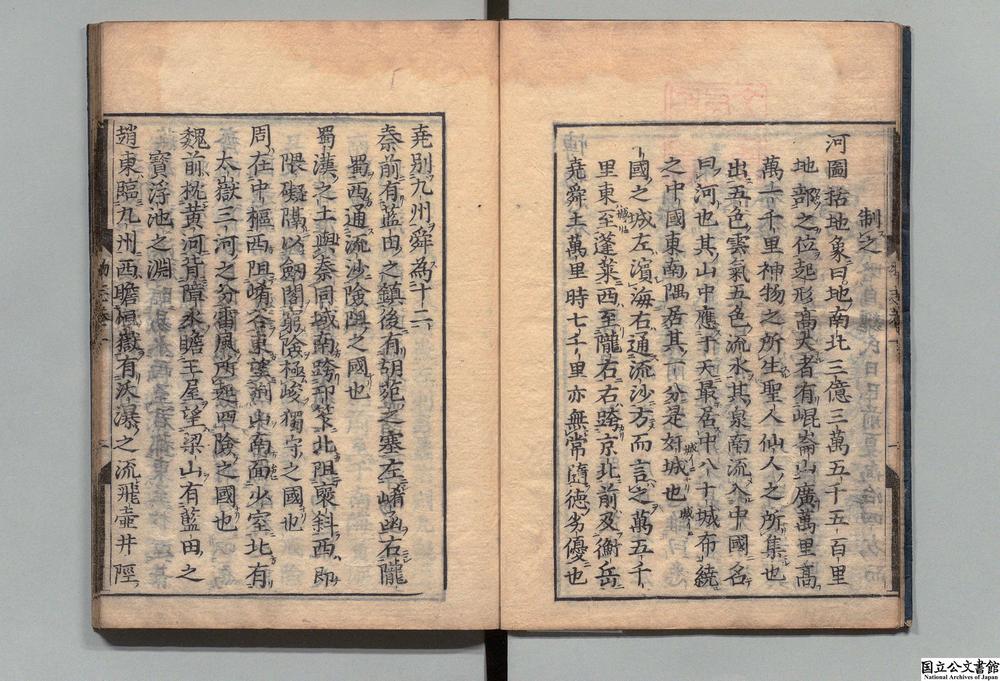 制之
河圖括地象曰地南北三億三萬五千五百里
地部之位起形高大者有崐崙山廣萬里高
萬一千里神物之所生聖人仙人之所集也
出五色雲氣五色流水其泉南流入中國名
曰河也其山中應于天最居中八十城布繞
之中國東南隅居其一分是奸城也
國之城左濱海右通流沙方而言之萬五千
里東至蓬萊西至隴右右跨京北前及衡岳
堯舜土萬里時七千里亦無常隨德劣優也
堯別九州舜為十二
秦前有藍田之鎮後有胡苑之塞左崤函右隴
蜀西通流沙險阻之國也
蜀漢之土與秦同域南跨邛筰北阻褒斜西即
隈礙隔以劒閣窮險極峻獨守之國也
周在中樞西阻崤谷東望荆山南面少室北有
太嶽三河之分雷風所起四險之國也
魏前枕黄河背障水瞻王屋望梁山有藍田之
寶浮池之淵
趙東臨九州西瞻恒嶽有沃瀑之流飛壺井陘
国立公文書館
National Archives of Japan